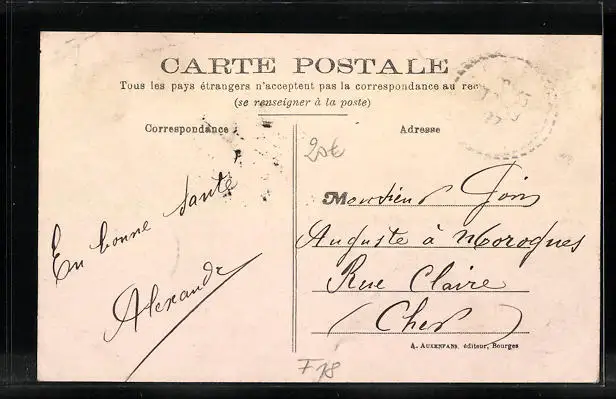 CARTE POSTALE
Tous les pays étrangers n'acceptent pas la correspondance au rec
(se renseigner à la poste)
Correspondance
Adresse
20€
En bonne santé
Alexandre
Monsieur Join
Auguste à Morogues
Rue Claire
(Cher)
A. AUXENFANS, éditeur, Bourges
F18